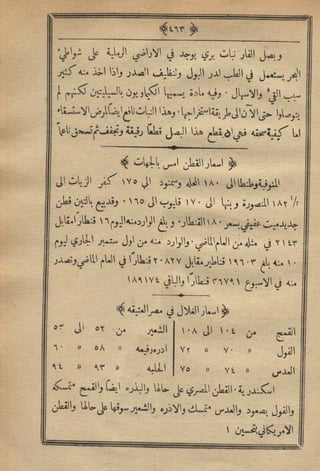 ﴿٤٦٣﴾
وبصل الفار نبات بري يوجد في الاراضي الرملية على شواطئ
البحر يستعمل في الطب لدر البول وتنظيف الصدر واذا اخذ منه كثير
سبب القئ والاسهال . وفيه مادة يسميها الكيماويون بالسيليتين لكنهم لم
يتوصلوا حتى الآن الى طريقة استخراجها . وهذا النبات نافع ايضاً لمرض الاستسقاء
اما كيفية سحقه فهي ان يقطع هذا البصل قطعاً رقيقة وتجفف ثم تسحق ناعماً
﴿ اسعار القطن امس بالجهات ﴾
المنوفية وطنطا الى ١٨٠ المحله وسمنود الى ١٧٥ كفر الزيات الى
١٨٢ ١/٢ المنصورة وبنها الى ١٧٠ قليوب الى ١٦٥ وقد بيع بالتين قطن
جديد ميت عفيفي بسعر ١٨٠ القنطار . و بلغ الوارد منه اليوم ١٦ قنطاراً مقابل
٢١٤٣ في مثله من العام الماضي . والوارد منه من اول سبتمبر الجاري ليوم
١٠ منه بلغ ١٩٦٠٣ قناطير مقابل ٢٠٨٢٧ قنطاراً في العام الماضي وتصدر
منه في الاسبوع ٣٦٧٩١ قنطاراً والباقي ١٨٩١٧٤
﴿ اسعار الغلال في مصر العتيقه ﴾
القمح من ١٠٤ الى ١٠٨ الشعير من ٥٢ الى ٥٣
الفول » ٧٠ » ٧٢ اذره رفيعه » ٥٨ » ٦٠
العدس » ٧٤ » ٧٥ الحلبه » ٩٣ » ٩٤
اسكندرية . القطن المصري على حالها والبذره ايضاً والقمح متمسكه
والفول بصعود والعدس متمسك والاذره والشعير سوقها على حالها والقطن
الامريكاني بتحسين ١